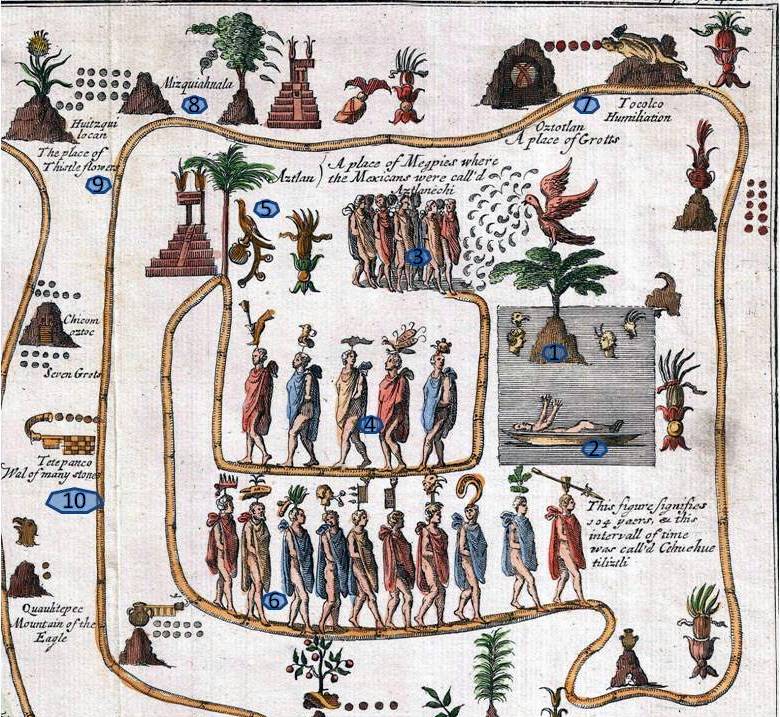 Mizquiahuala
8
Huitzqui
locan
The place of
Thistle flowers
9
7
Tocolco
Humiliation
Oztotlan
A place of Grotts
Aztlan
A place of Megpies where
the Mexicans were call'd
Aztlanechi
5
3
1
Chicom
oztoc
Seven Grots
4
2
Tetepanco
Wal of many stones
10
This figure signifies
104 yaers, & this
intervall of time
was call'd Cehuehue
tiliztli
6
Quauhtepec
Mountain of the
Eagle